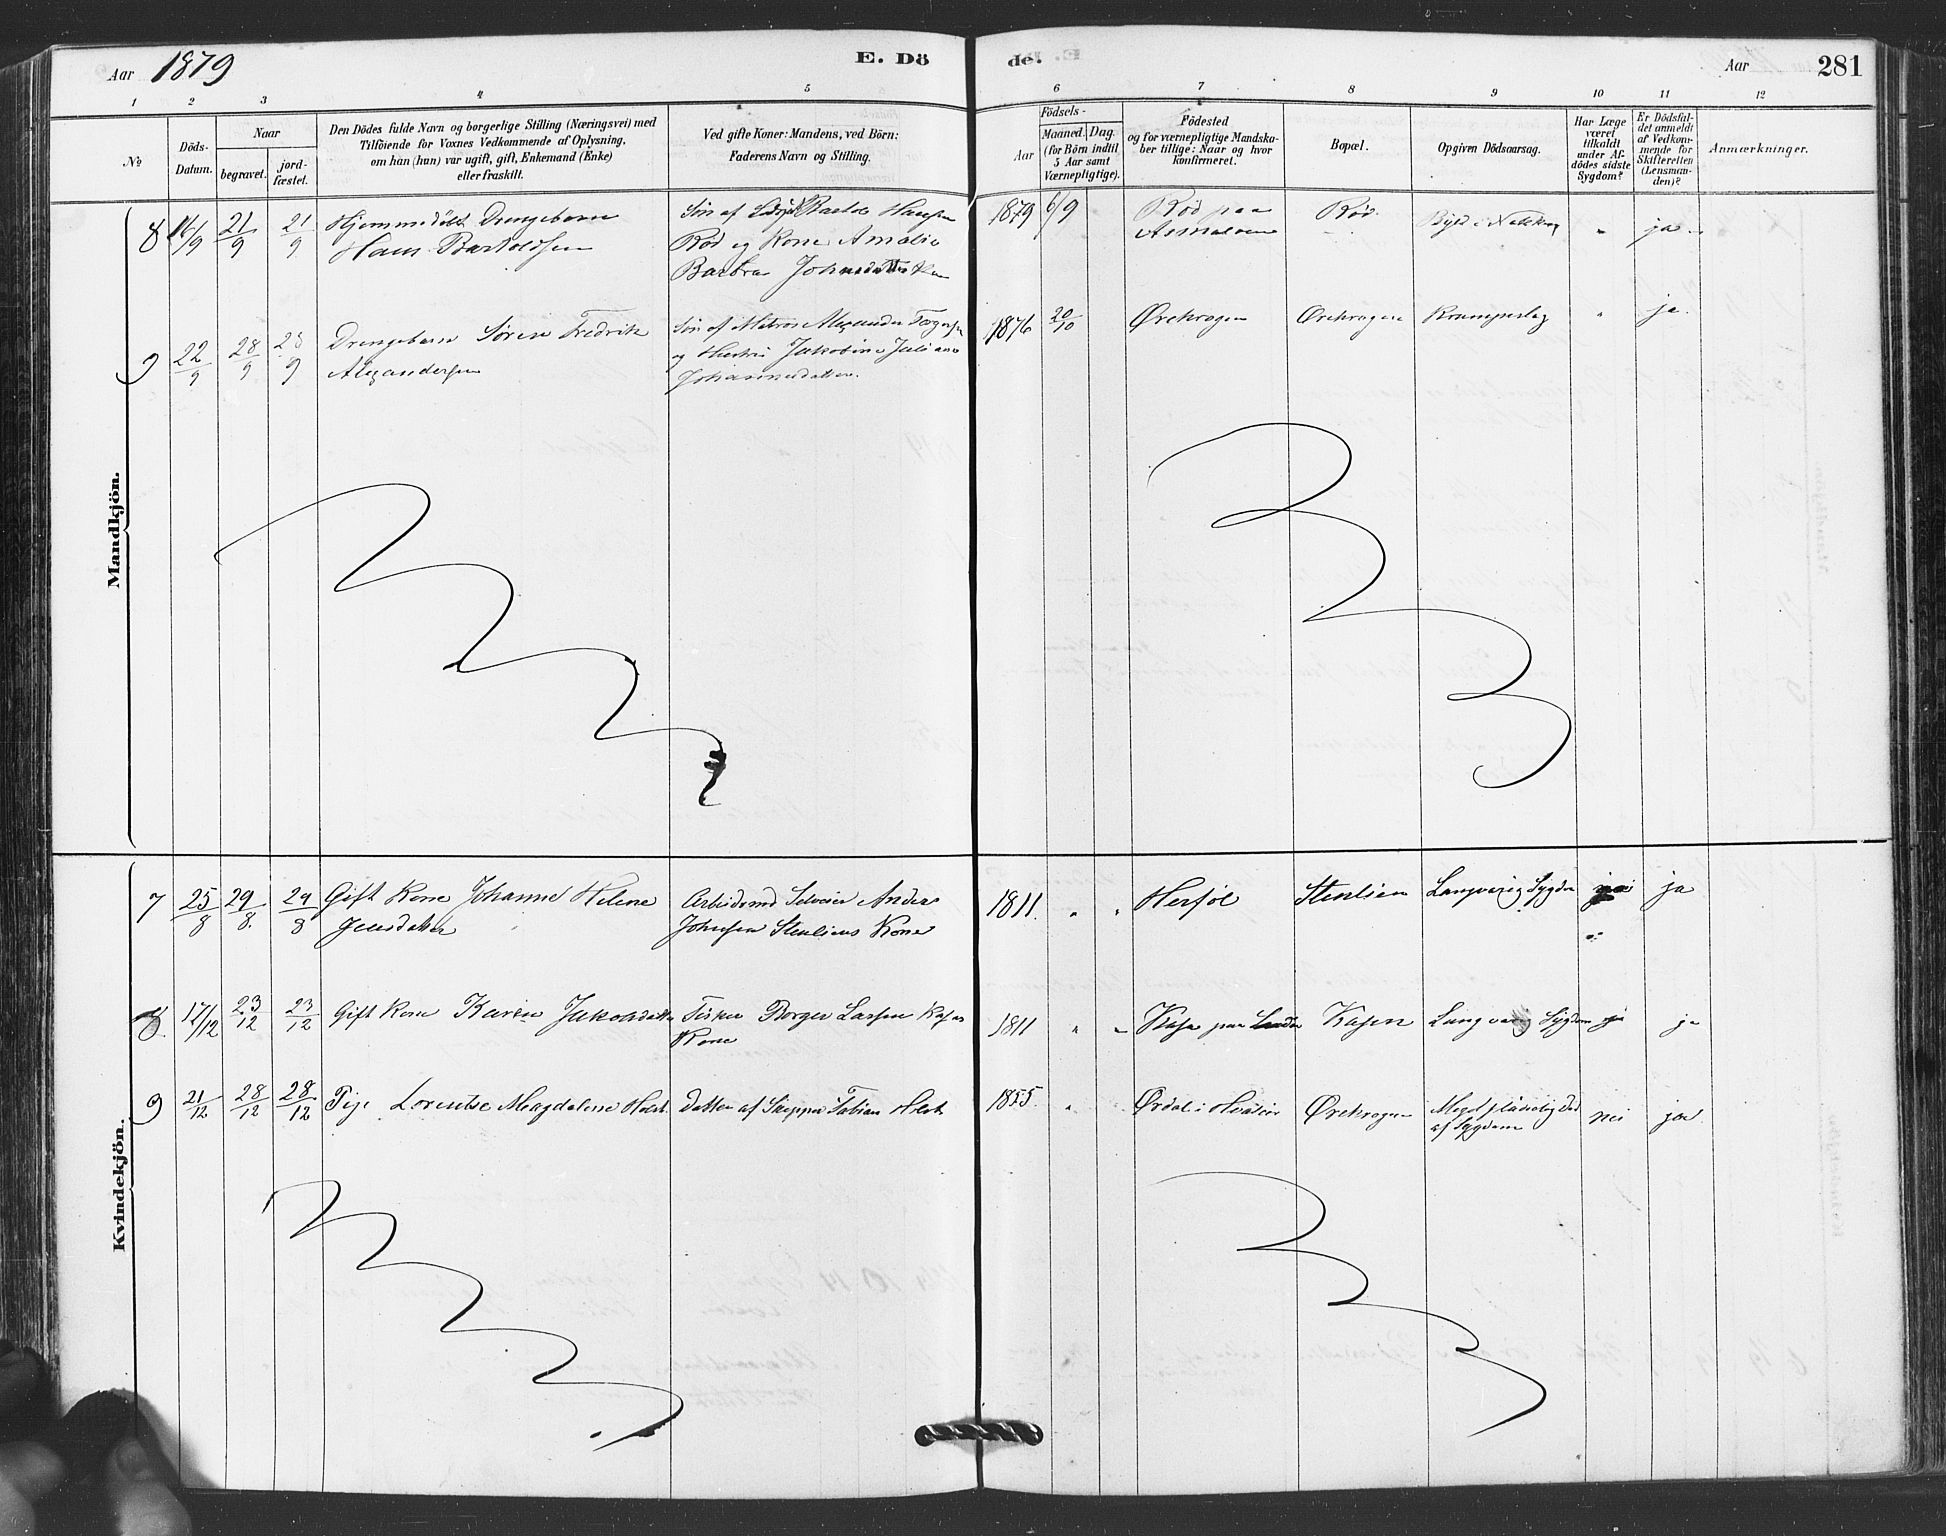 Aar 1879
E. Dö
de.
Aar
281
1 2 3 4 5 6 7 8 9 10 11 12
No
Döds-
Datum.
Naar
begravet.
jord-
fæstet.
Den Dödes fulde Navn og borgerlige Stilling (Næringsvei) med
Tilföiende for Voxnes Vedkommende af Oplysning,
om han (hun) var ugift, gift, Enkemand (Enke)
eller fraskilt.
Ved gifte Koner: Mandens, ved Börn:
Faderens Navn og Stilling.
Födsels-
Aar
Maaned. Dag.
(for Börn indtil
5 Aar samt
Værnepligtige).
Födested
og for værnepligtige Mandska-
ber tillige: Naar og hvor
konfirmeret.
Bopæl.
Opgiven Dödsaarsag.
Har Læge
været
tilkaldt
under Af-
dödes sidste
Sygdom?
Er Dödsfal-
det anmeldt
af Vedkom-
mende for
Skifteretten
(Lensman-
den)?
Anmærkninger.
Mandkjön.
8 16/9 21/9 21/9
Hjemmedöbt Drengebarn
Hans Bartoldsen
Søn af
Rød og Kone Amalie
Barbra
1879 6/9
Rød paa
Asmaløen
Rød
Byld i
ja
9 22/9 28/9 28/9
Drengebarn Søren Fredrik
Alexandersen
Søn af Matros Alexander
og Hustru Jakobine Juliane
Johannesdatter.
1876 20/10
Ørekrogen
Ørekrogen
ja.
Kvindekjön.
7 25/8 29/8. 29/8
Gift Kone Johanne Helene
Jensdatter
Arbeidsmd Selveier Anders
Johnsen Stenliens Kone
1811. " "
Herføl
Stenlien
Langvarig Sygdom
ja
8. 17/12 23/12 23/12
Gift Kone Karen Jakobsdatter
Fisker Borger Larsen
Kone
1811 "
Kasen
Langvarig Sygdom
ja
9 21/12 28/12 28/12
Pige Lorentse Magdalene Holst
Datter af Skipper Fabian Holst
1855. "
Ørdal i
Ørekrogen
Meget pludselig Død
af Sygdom
nei
ja